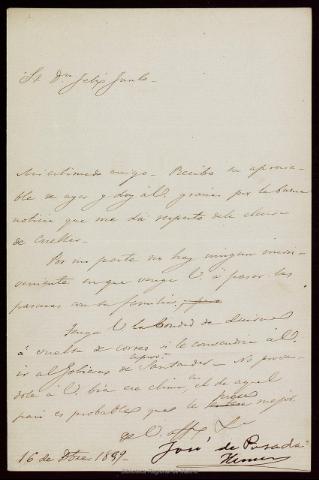 Sr Dn Felix Junlo.
Mi estimado amigo. Recibo su aprecia-
ble de ayer y doy á V. gracias por la buena
noticia que me da respecto de la
de Cuellar.
Por mi parte no hay ningun incon-
veniente en que venga V. á pasar las
pascuas con su familia,
Tenga V. la bondad de decirme
á vuelta de correo si le convendria á V.
ir al Gobierno de Santander. No proba-
dole á V. bien ese clima, el de aquel
pais es probable que le pruebe mejor.
de V. affo
José de Posada
Herrera
16 de Dbre 1889